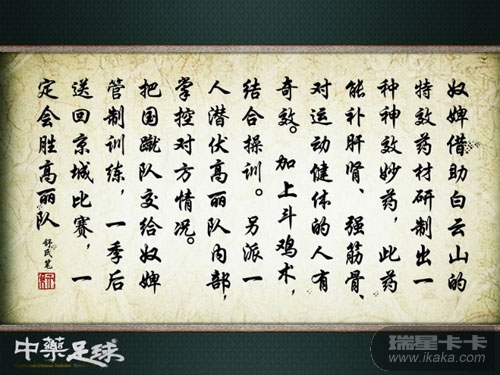 奴婢借助白云山的
特效药材研制出一
种神效妙药，此药
能补肝肾、强筋骨、
对运动健体的人有
奇效。加上斗鸡术，
结合操训。另派一
人潜伏高丽队内部，
掌控对方情况。
把国蹴队交给奴婢
管制训练，一季后
送回京城比赛，一
定会胜高丽队
舒民笔
中藥足球
瑞星卡卡
www.ikaka.com